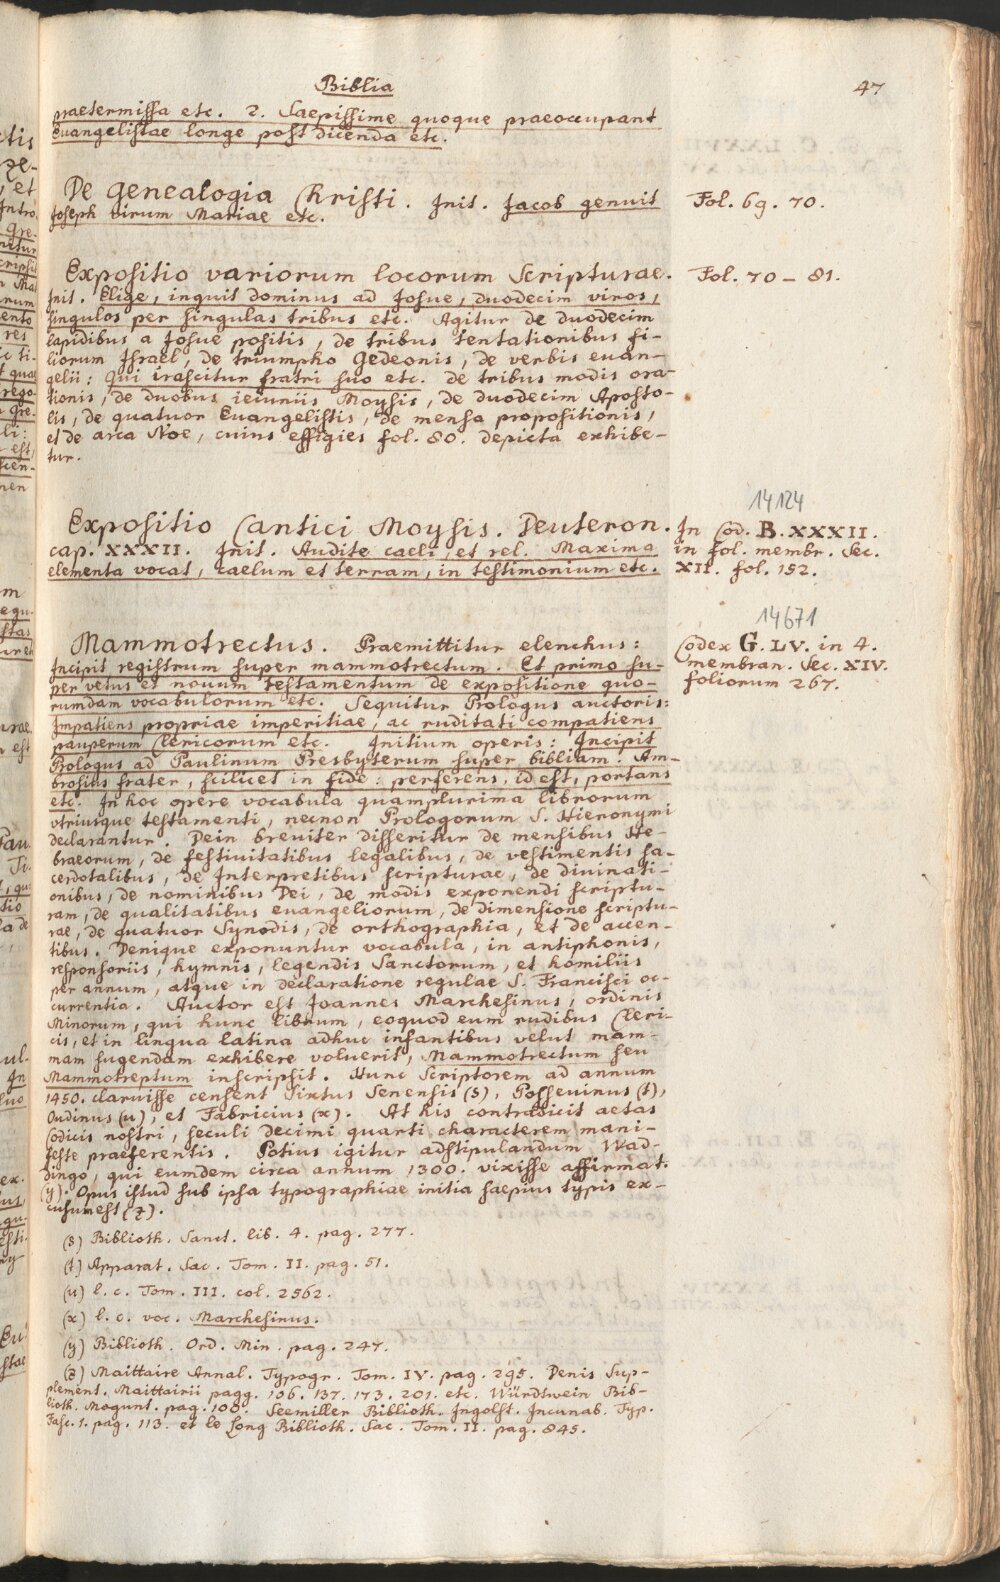 Biblia
47
praetermissa etc. 2. Saepissime quoque praeoccupant
Euangelistae longe post dicenda etc.
De Genealogia Christi. Init. Jacob genuit
Joseph virum Mariae etc.
Fol. 69. 70.
Expositio variorum locorum Scripturae.
Fol. 70 – 81.
Init. Elige, inquit dominus ad Josue, duodecim viros,
singulos per singulas tribus etc. Agitur de duodecim
lapidibus a Josue positis, de tribus tentationibus fi-
liorum Israel, de triumpho Gedeonis, de verbis euan-
gelii: Qui irascitur fratri suo etc. de tribus modis ora-
tionis, de duobus ieiuniis Moysis, de duodecim Aposto-
lis, de quatuor Euangelistis, de mensa propositionis,
et de arca Noe, cuius effigies fol. 80. depicta exhibe-
tur.
14124
Expositio Cantici Moysis. Deuteron.
cap. XXXII. Init. Audite caeli, et rel. Maxima
elementa vocat, caelum et terram, in testimonium etc.
In Cod. B. XXXII.
in fol. membr. Sec.
XII. fol. 152.
14671
Mammotrectus. Praemittitur elenchus:
Incipit registrum super mammotrectum. Et primo su-
per vetus et novum testamentum de expositione quo-
rumdam vocabulorum etc. Sequitur Prologus auctoris:
Impatiens propriae imperitiae, ac ruditati compatiens
pauperum Clericorum etc. Initium operis: Incipit
Prologus ad Paulinum Presbyterum super bibliam. Am-
brosius frater, scilicet in fide: perferens, id est, portans
etc. In hoc opere vocabula quamplurima librorum
vtriusque testamenti, necnon Prologorum S. Hieronymi
declarantur. Dein breuiter disseritur de mensibus He-
braeorum, de festiuitatibus legalibus, de vestimentis sa-
cerdotalibus, de Interpretibus scripturae, de diuinati-
onibus, de nominibus Dei, de modis exponendi scriptu-
ram, de qualitatibus euangeliorum, de dimensione scriptu-
rae, de quatuor Synodis, de orthographia, et de accen-
tibus. Denique exponuntur vocabula, in antiphonis,
responsoriis, hymnis, legendis Sanctorum, et homiliis
per annum, atque in declaratione regulae S. Francisci oc-
currentia. Auctor est Joannes Marchesinus, ordinis
Minorum, qui hunc librum, eoquod eum rudibus Cleri-
cis, et in lingua latina adhuc infantibus velut mam-
mam sugendam exhibere voluerit, Mammotrectum seu
Mammotreptum inscripsit. Hunc Scriptorem ad annum
1450. claruisse censent Sixtus Senensis (s), Posseuinus (t),
Oudinus (u), et Fabricius (x). At his contradicit aetas
Codicis nostri, seculi decimi quarti characterem mani-
feste praeferentis. Potius igitur adstipulandum Wad-
dingo, qui eumdem circa annum 1300. vixisse affirmat.
(y). Opus istud sub ipsa typographiae initia saepius typis ex-
cusum est (z).
Codex G. LV. in 4.
membran. Sec. XIV.
foliorum 267.
(s) Biblioth. Sanct. lib. 4. pag. 277.
(t) Apparat. Sac. Tom. II. pag. 51.
(u) l. c. Tom. III. col. 2562.
(x) l. c. voc. Marchesinus.
(y) Biblioth. Ord. Min. pag. 247.
(z) Maittaire Annal. Typogr. Tom. IV. pag. 295. Denis Sup-
plement. Maittairii pagg. 106. 137. 173. 201. etc. Würdtwein Bib-
lioth. Mogunt. pag. 108. Seemiller Biblioth. Ingolst. Incunab. Typ.
Fasc. 1. pag. 113. et le Long Biblioth. Sac. Tom. II. pag. 845.